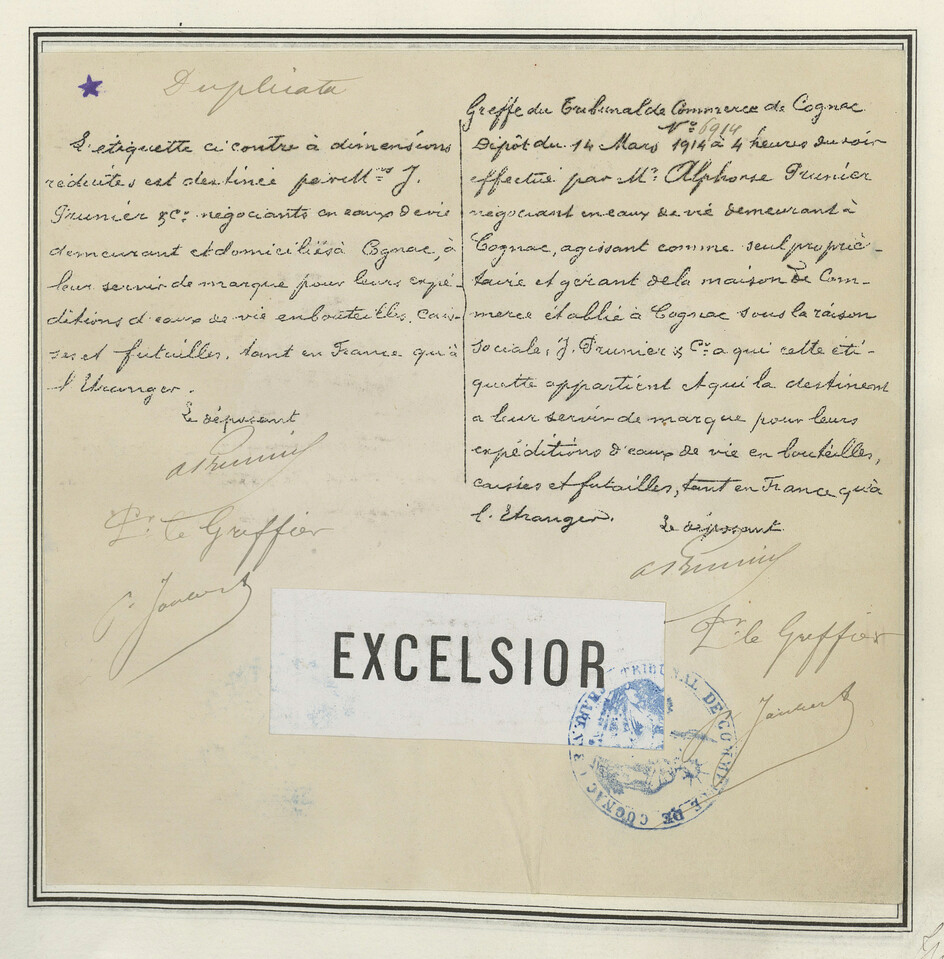 Duplicata
L'étiquette ci contre à dimensions
réduites est destinée par M.rs J.
Prunier & C.ie négociants en eaux de vie
demeurant et domiciliés à Cognac, à
leur servir de marque pour leurs expé-
ditions d'eaux de vie en bouteilles, cais-
ses et futailles, tant en France qu'à
l'Etranger.
Le déposant
A Prunier
P.r le Greffier
Greffe du Tribunal de Commerce de Cognac
N.o 6914
Dépôt du 14 Mars 1914 à 4 heures du soir
effectué par M.r Alphonse Prunier
négociant en eaux de vie demeurant à
Cognac, agissant comme seul proprié-
taire et gérant de la maison de Com-
merce établie à Cognac sous la raison
sociale, J. Prunier & C.ie a qui cette éti-
quette appartient et qui la destinent
a leur servir de marque pour leurs
expéditions d'eaux de vie en bouteilles,
caisses et futailles, tant en France qu'à
l'Etranger.
Le déposant
A Prunier
P.r le Greffier
EXCELSIOR
TRIBUNAL DE COMMERCE DE COGNAC